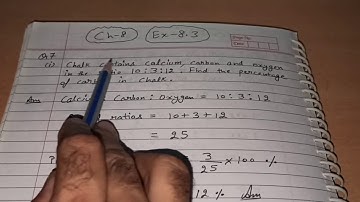 Ch-8 Ex-8.3
Q7
(i) Chalk contains calcium, carbon and oxygen
in the ratio 10:3:12. Find the percentage
of carbon in chalk.
Ans Calcium : Carbon : Oxygen = 10:3:12
ratios = 10+3+12
= 25
3/25 × 100 %
12 % Ans